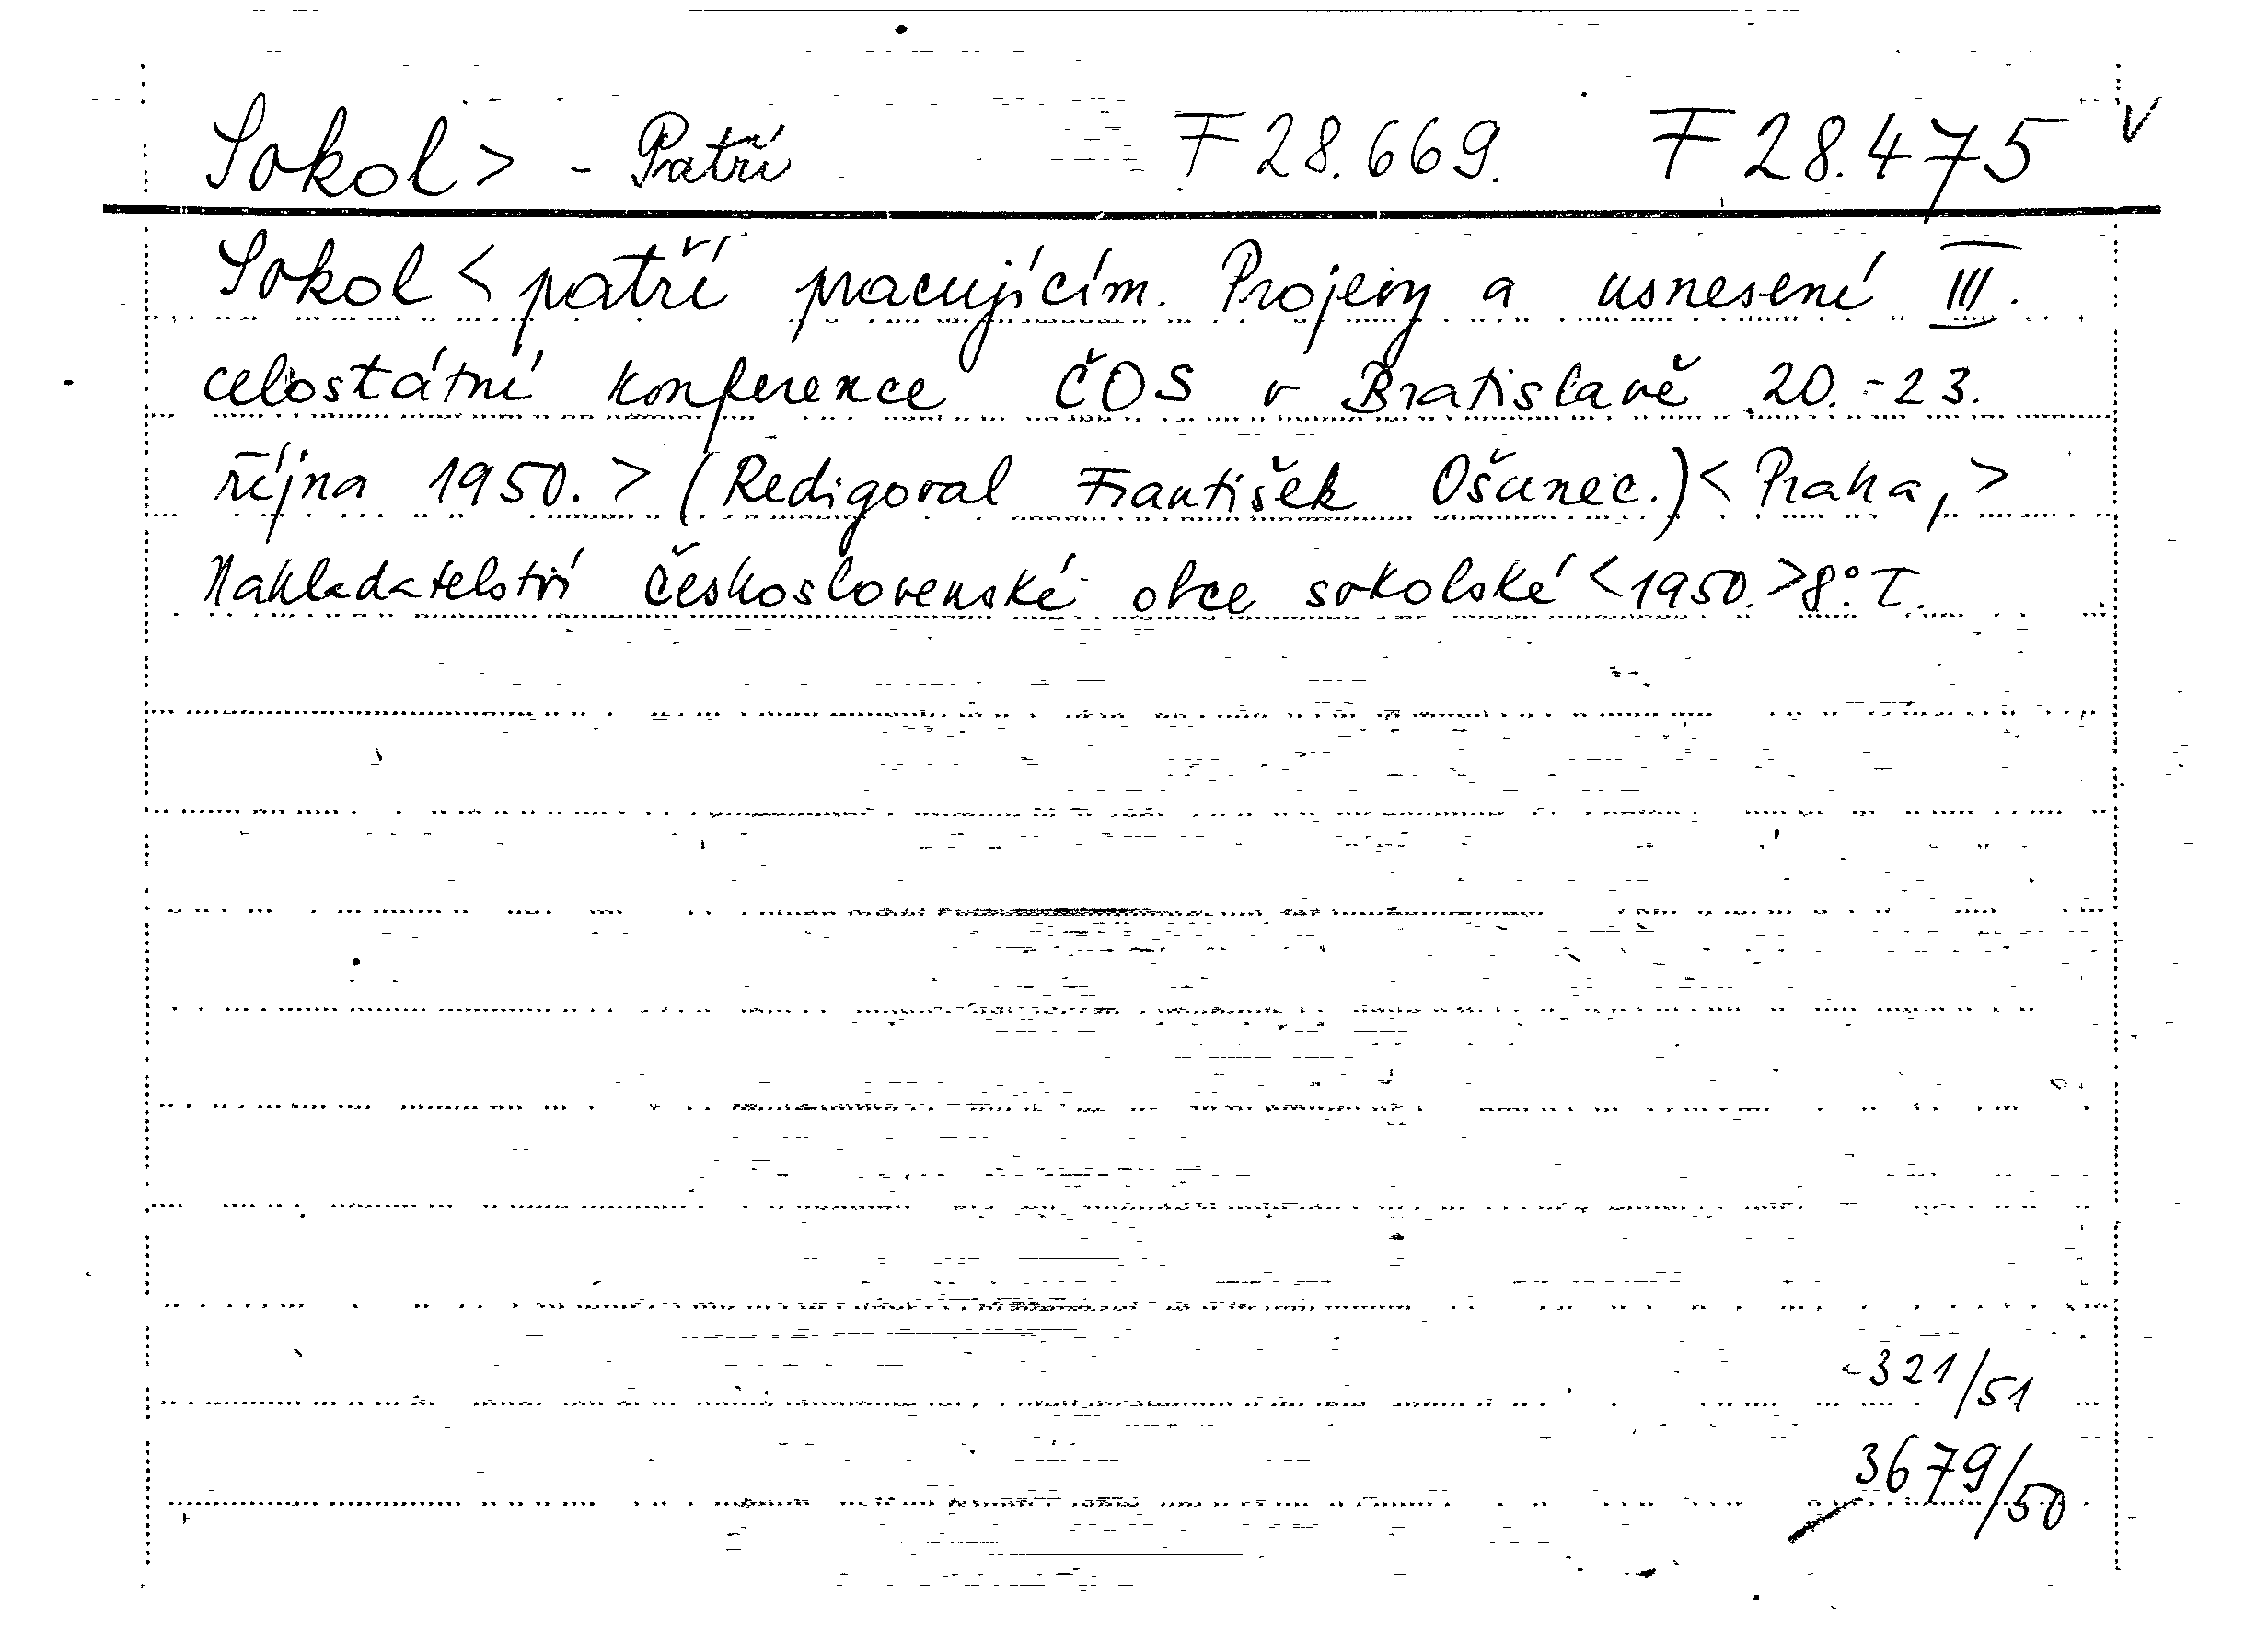 Sokol > - Patří F 28.669. F 28.475 v
Sokol < patří pracujícím. Projevy a usnesení III.
celostátní konference ČOS v Bratislavě 20.-23.
října 1950. > (Redigoval František Ošanec.) < Praha, >
Nakladatelství Československé obce sokolské < 1950. > 8° T.
-321/51
3679/50